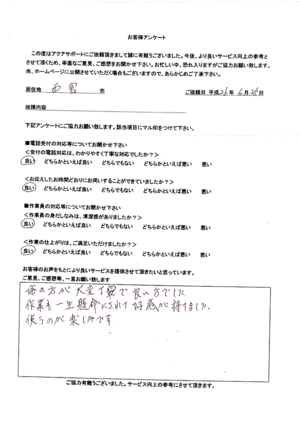 お客様アンケート
この度はアクアサポートにご依頼頂きまして誠に有難うございました。今後、より良いサービス向上の参考と
させて頂くため、率直なご意見、ご感想をお聞かせ下さい。お忙しい中、恐れ入りますがご協力お願い致します。
尚、ホームページに公開させていただく場合もございますので、あらかじめご了承下さい。
居住地 西宮 市 ご依頼日 平成 年 6月 日
依頼内容
下記アンケートにご協力お願い致します。該当項目にマル印をつけて下さい。
■電話受付の対応等についてお聞かせ下さい
<受付の電話対応は、わかりやすく丁寧な対応でしたか?>
良い どちらかといえば良い どちらでもない どちらかといえば悪い 悪い
<お伝えしたお時間どおりにお伺いすることができていましたか?>
良い どちらかといえば良い どちらでもない どちらかといえば悪い 悪い
■作業員の対応等についてお聞かせ下さい
<作業員の身だしなみは、清潔感がありましたか?>
良い どちらかといえば良い どちらでもない どちらかといえば悪い 悪い
<作業の仕上がりは、ご満足いただけましたか?>
良い どちらかといえば良い どちらでもない どちらかといえば悪い 悪い
お客様のお声をもとにより良いサービスを提供させて頂きたいと思っています。
ご意見、ご感想等、一言お願い致します
の方が大変丁寧で良い方でした
作業も一生懸命にされて好感が持てました。
使うのが楽しみです
ご協力有難うございました。サービス向上の参考にさせて頂きます。